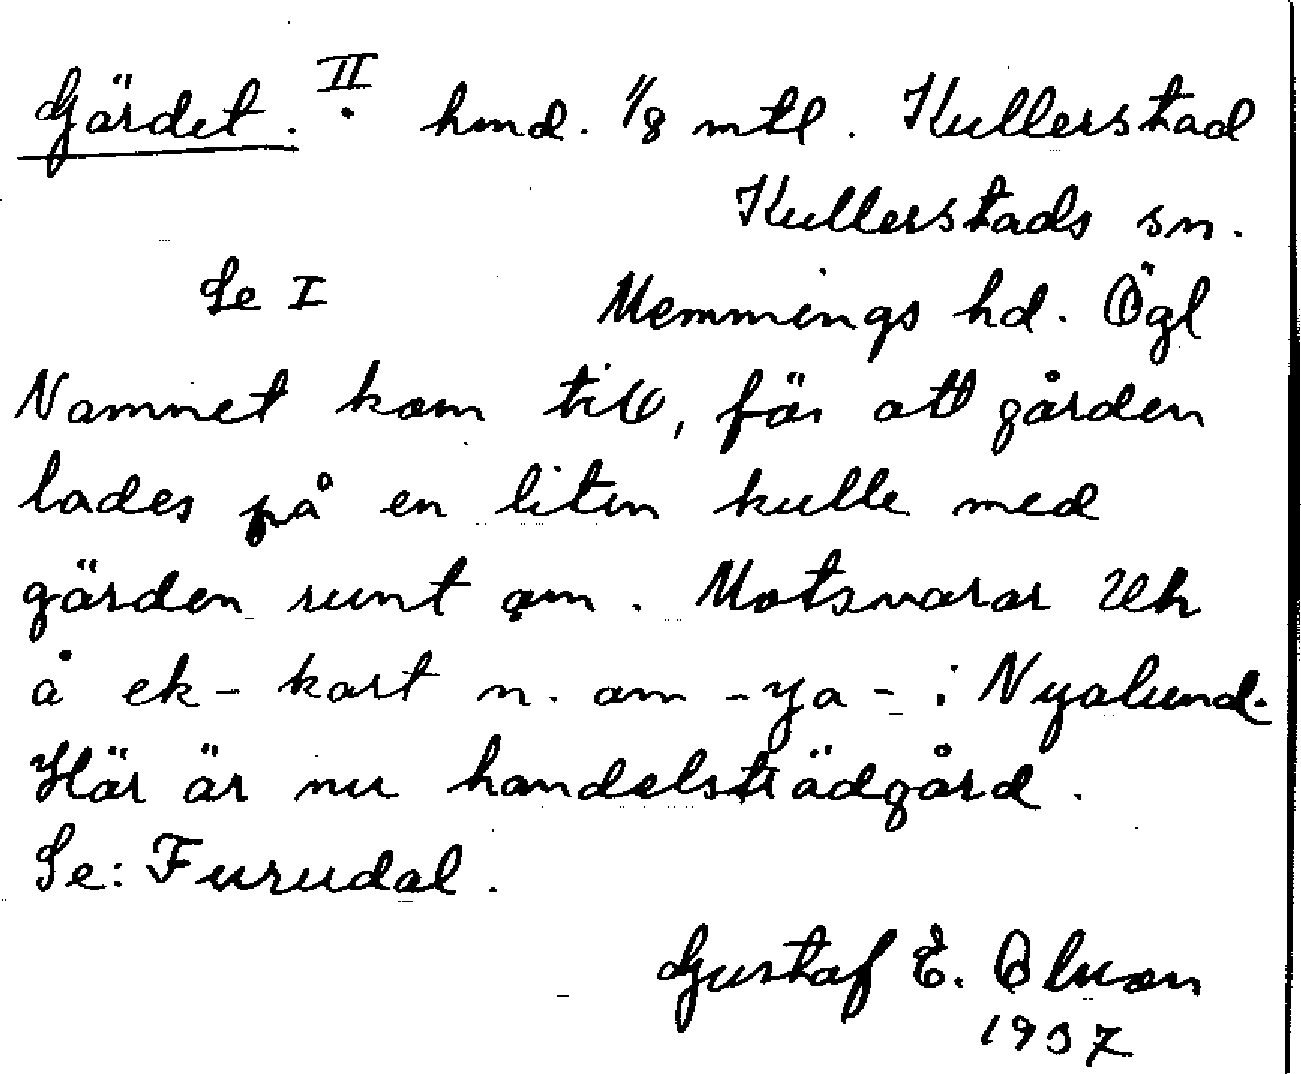 Gärdet. II. hmd. 1/8 mtl. Kullerstad
Kullerstads sn.
Se I Memmings hd. Ögl
Namnet kom till, för att gården
lades på en liten kulle med
gärden runt om. Motsvarar Uh
å ek-kart n. om -ya- i Nyalund.
Här är nu handelsträdgård.
Se: Furudal.
Gustaf E. Olsson
1937